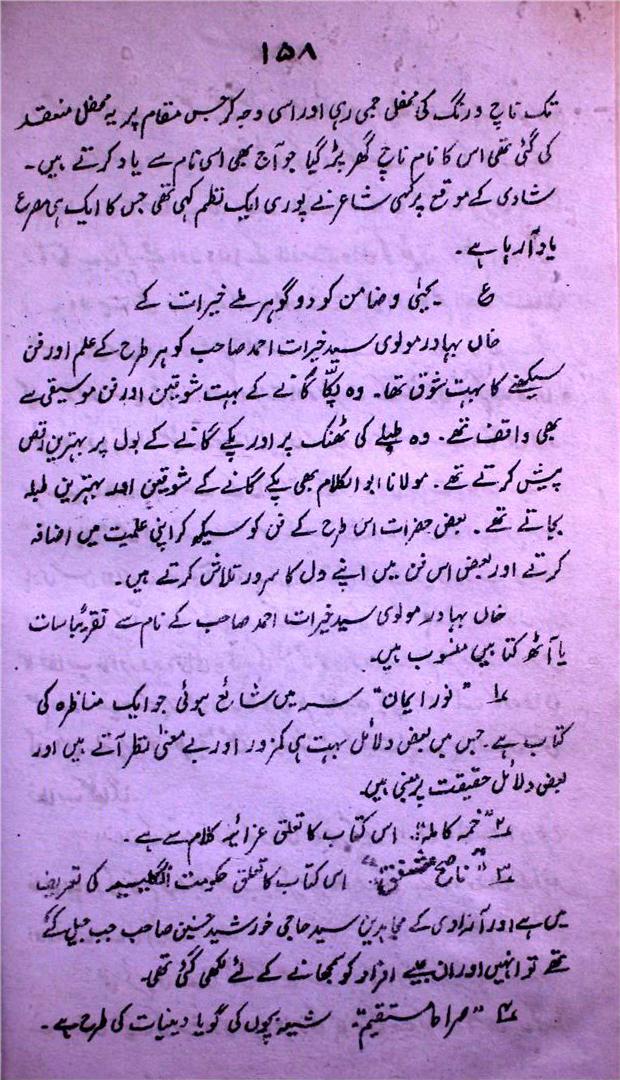 ۱۵۸
تک ناچ و رنگ کی محفل جمی رہی اور اسی وجہ کر جس مقام پر یہ محفل منعقد
کی گئی تھی اس کا نام ناچ گھر پڑ گیا جو آج بھی اسی نام سے یاد کرتے ہیں۔
شادی کے موقع پر کسی شاعر نے پوری ایک نظم کہی تھی جس کا ایک ہی مصرع
یاد آرہا ہے۔
ع ۔ یحییٰ و ضامن کو دو گوہر ملے خیرات کے
خاں بہادر مولوی سید خیرات احمد صاحب کو ہر طرح کے علم اور فن
سیکھنے کا بہت شوق تھا۔ وہ پکّا گانے کے بہت شوقین اور فن موسیقی سے
بھی واقف تھے۔ وہ طبلے کی ٹھنک پر اور پکے گانے کے بول پر بہترین رقص
پیش کرتے تھے۔ مولانا ابوالکلام بھی پکے گانے کے شوقین اور بہترین طبلہ
بجاتے تھے۔ بعض حضرات اس طرح کے فن کو سیکھ کر اپنی علمیت میں اضافہ
کرتے اور بعض اس فن میں اپنے دل کا سرور تلاش کرتے ہیں۔
خاں بہادر مولوی سید خیرات احمد صاحب کے نام سے تقریباً سات
یا آٹھ کتابیں منسوب ہیں۔
۱؎ "نور ایمان" سنہ میں شائع ہوئی جو ایک مناظرہ کی
کتاب ہے۔ جس میں بعض دلائل بہت ہی کمزور اور بے معنیٰ نظر آتے ہیں اور
بعض دلائل حقیقت پر مبنی ہیں۔
۲؎ " اس کتاب کا تعلق عزائیہ کلام سے ہے۔
۳؎ "ناصح مشفق" اس کتاب کا تعلق حکومت انگلیسیہ کی تعریف
میں ہے اور آزادی کے مجاہدین سید حاجی خورشید حسنین صاحب جب جیل گئے
تھے تو انہیں اور ان جیسے افراد کو سمجھانے کے لئے لکھی گئی تھی۔
۴؎ "صراط مستقیم"۔ شیعہ بچوں کی گویا دینیات کی طرح ہے۔